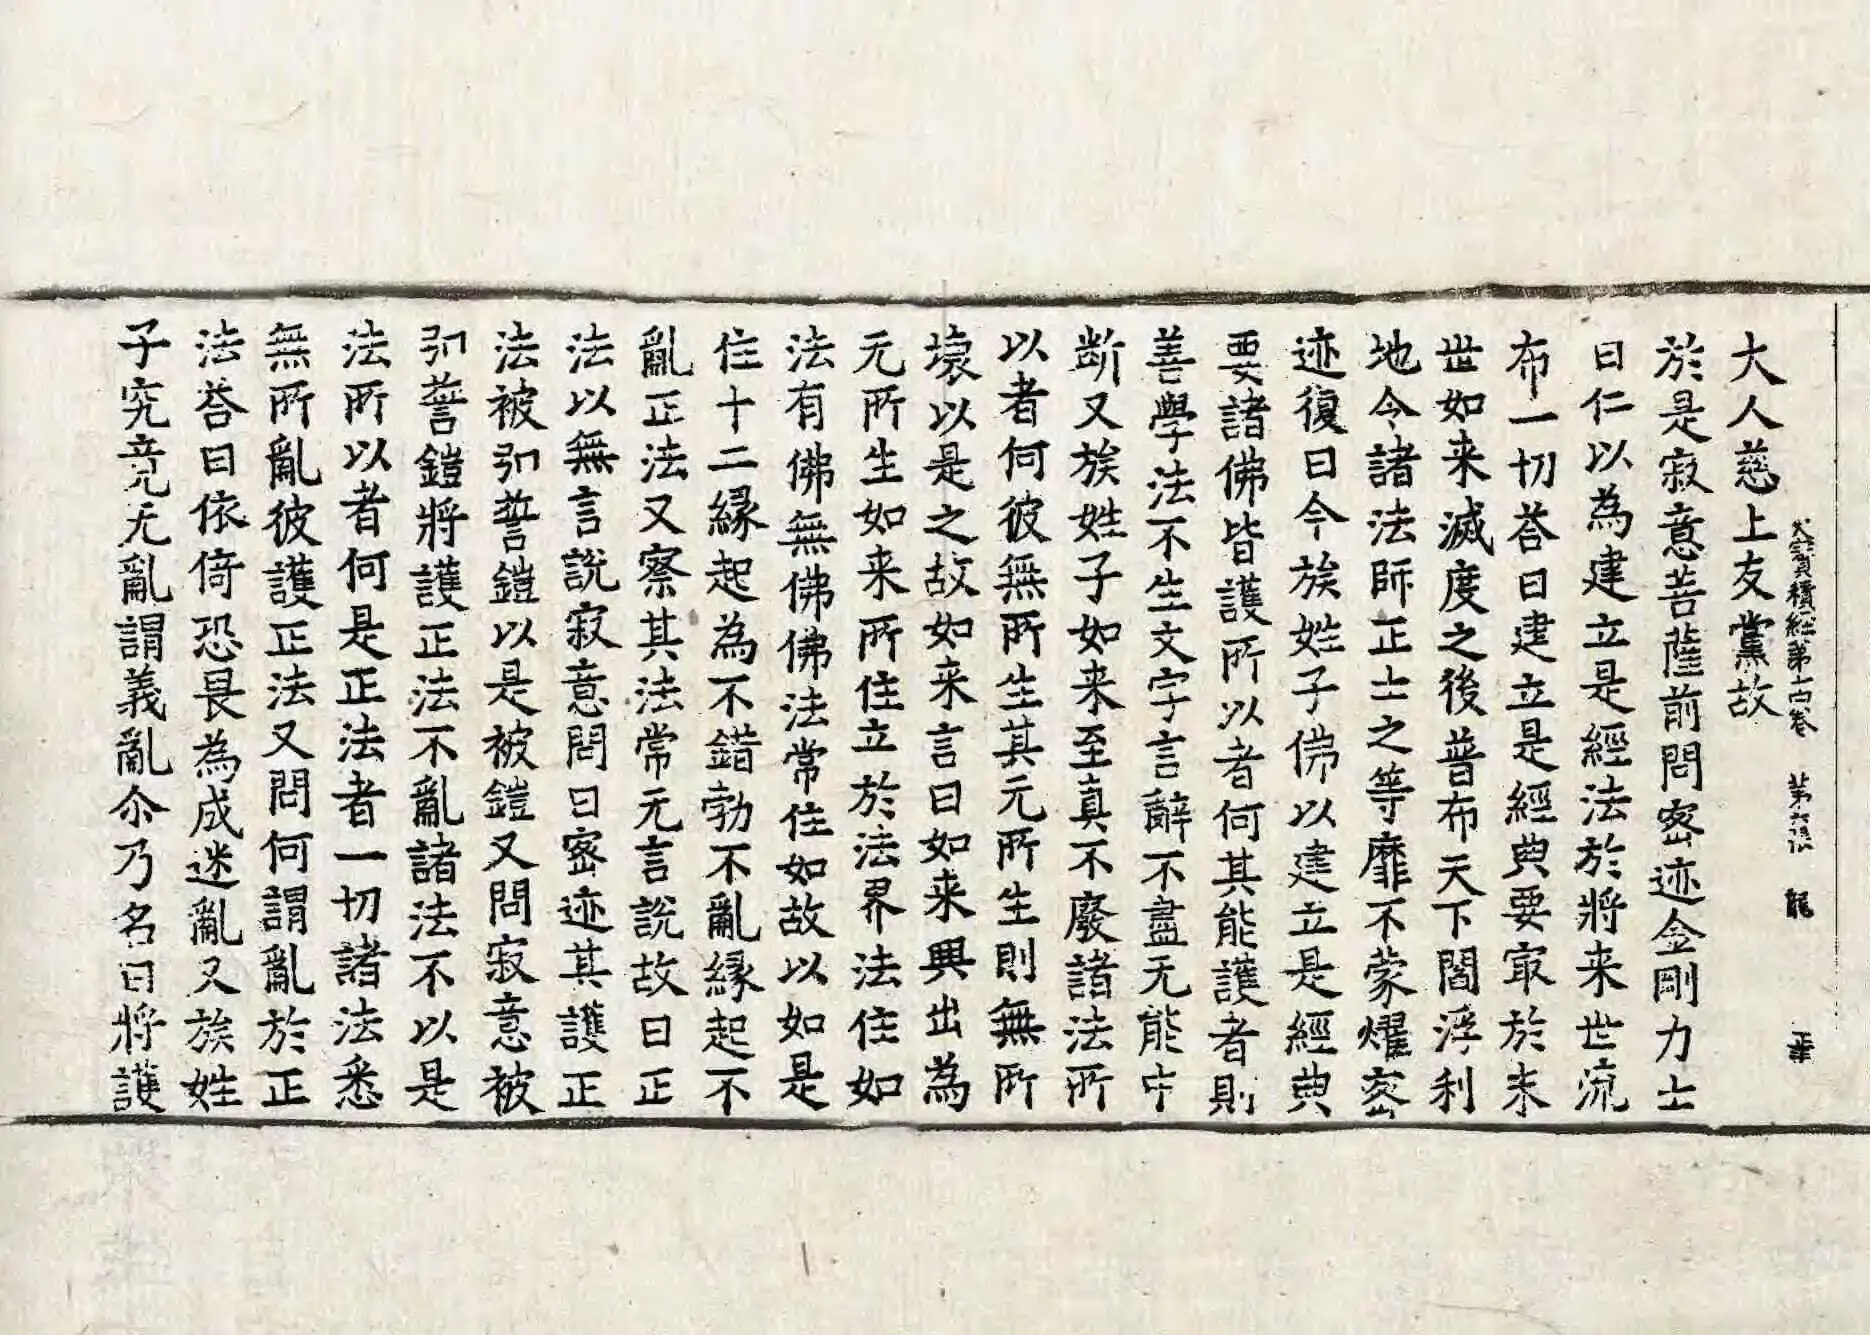 大寶積經第十四卷　第六張　龍
大人慈上友黨故
於是寂意菩薩前問密迹金剛力士
曰仁以為建立是經法於將来世流
布一切荅曰建立是經典要㝡於末
世如来滅度之後普布天下閻浮利
地令諸法師正士之等靡不蒙燿密
迹復曰今族姓子佛以建立是經典
要諸佛皆護所以者何其能護者則
善學法不生文字言辭不盡无能中
断又族姓子如来至真不廢諸法所
以者何彼無所生其无所生則無所
壞以是之故如来言曰如来興出為
无所生如来所住立於法界法住如
法有佛無佛佛法常住如故以如是
住十二緣起為不錯勃不亂緣起不
亂正法又察其法常无言說故曰正
法以無言說寂意問曰密迹其護正
法被弘誓鎧以是被鎧又問寂意被
弘誓鎧將護正法不亂諸法不以是
法所以者何是正法者一切諸法悉
無所亂彼護正法又問何謂亂於正
法荅曰依倚恐畏為成迷亂又族姓
子究竟无亂謂義亂尒乃名曰將護